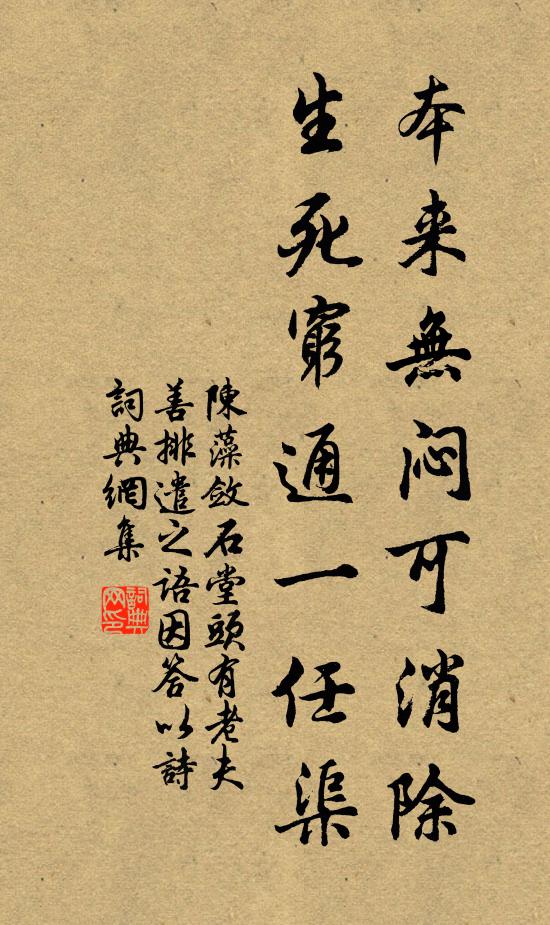 本来無闷可消除
生死窮通一任渠
陳藻斂石堂頭有老夫
善排遣之語因答以詩
詞典網集
詞典
网印